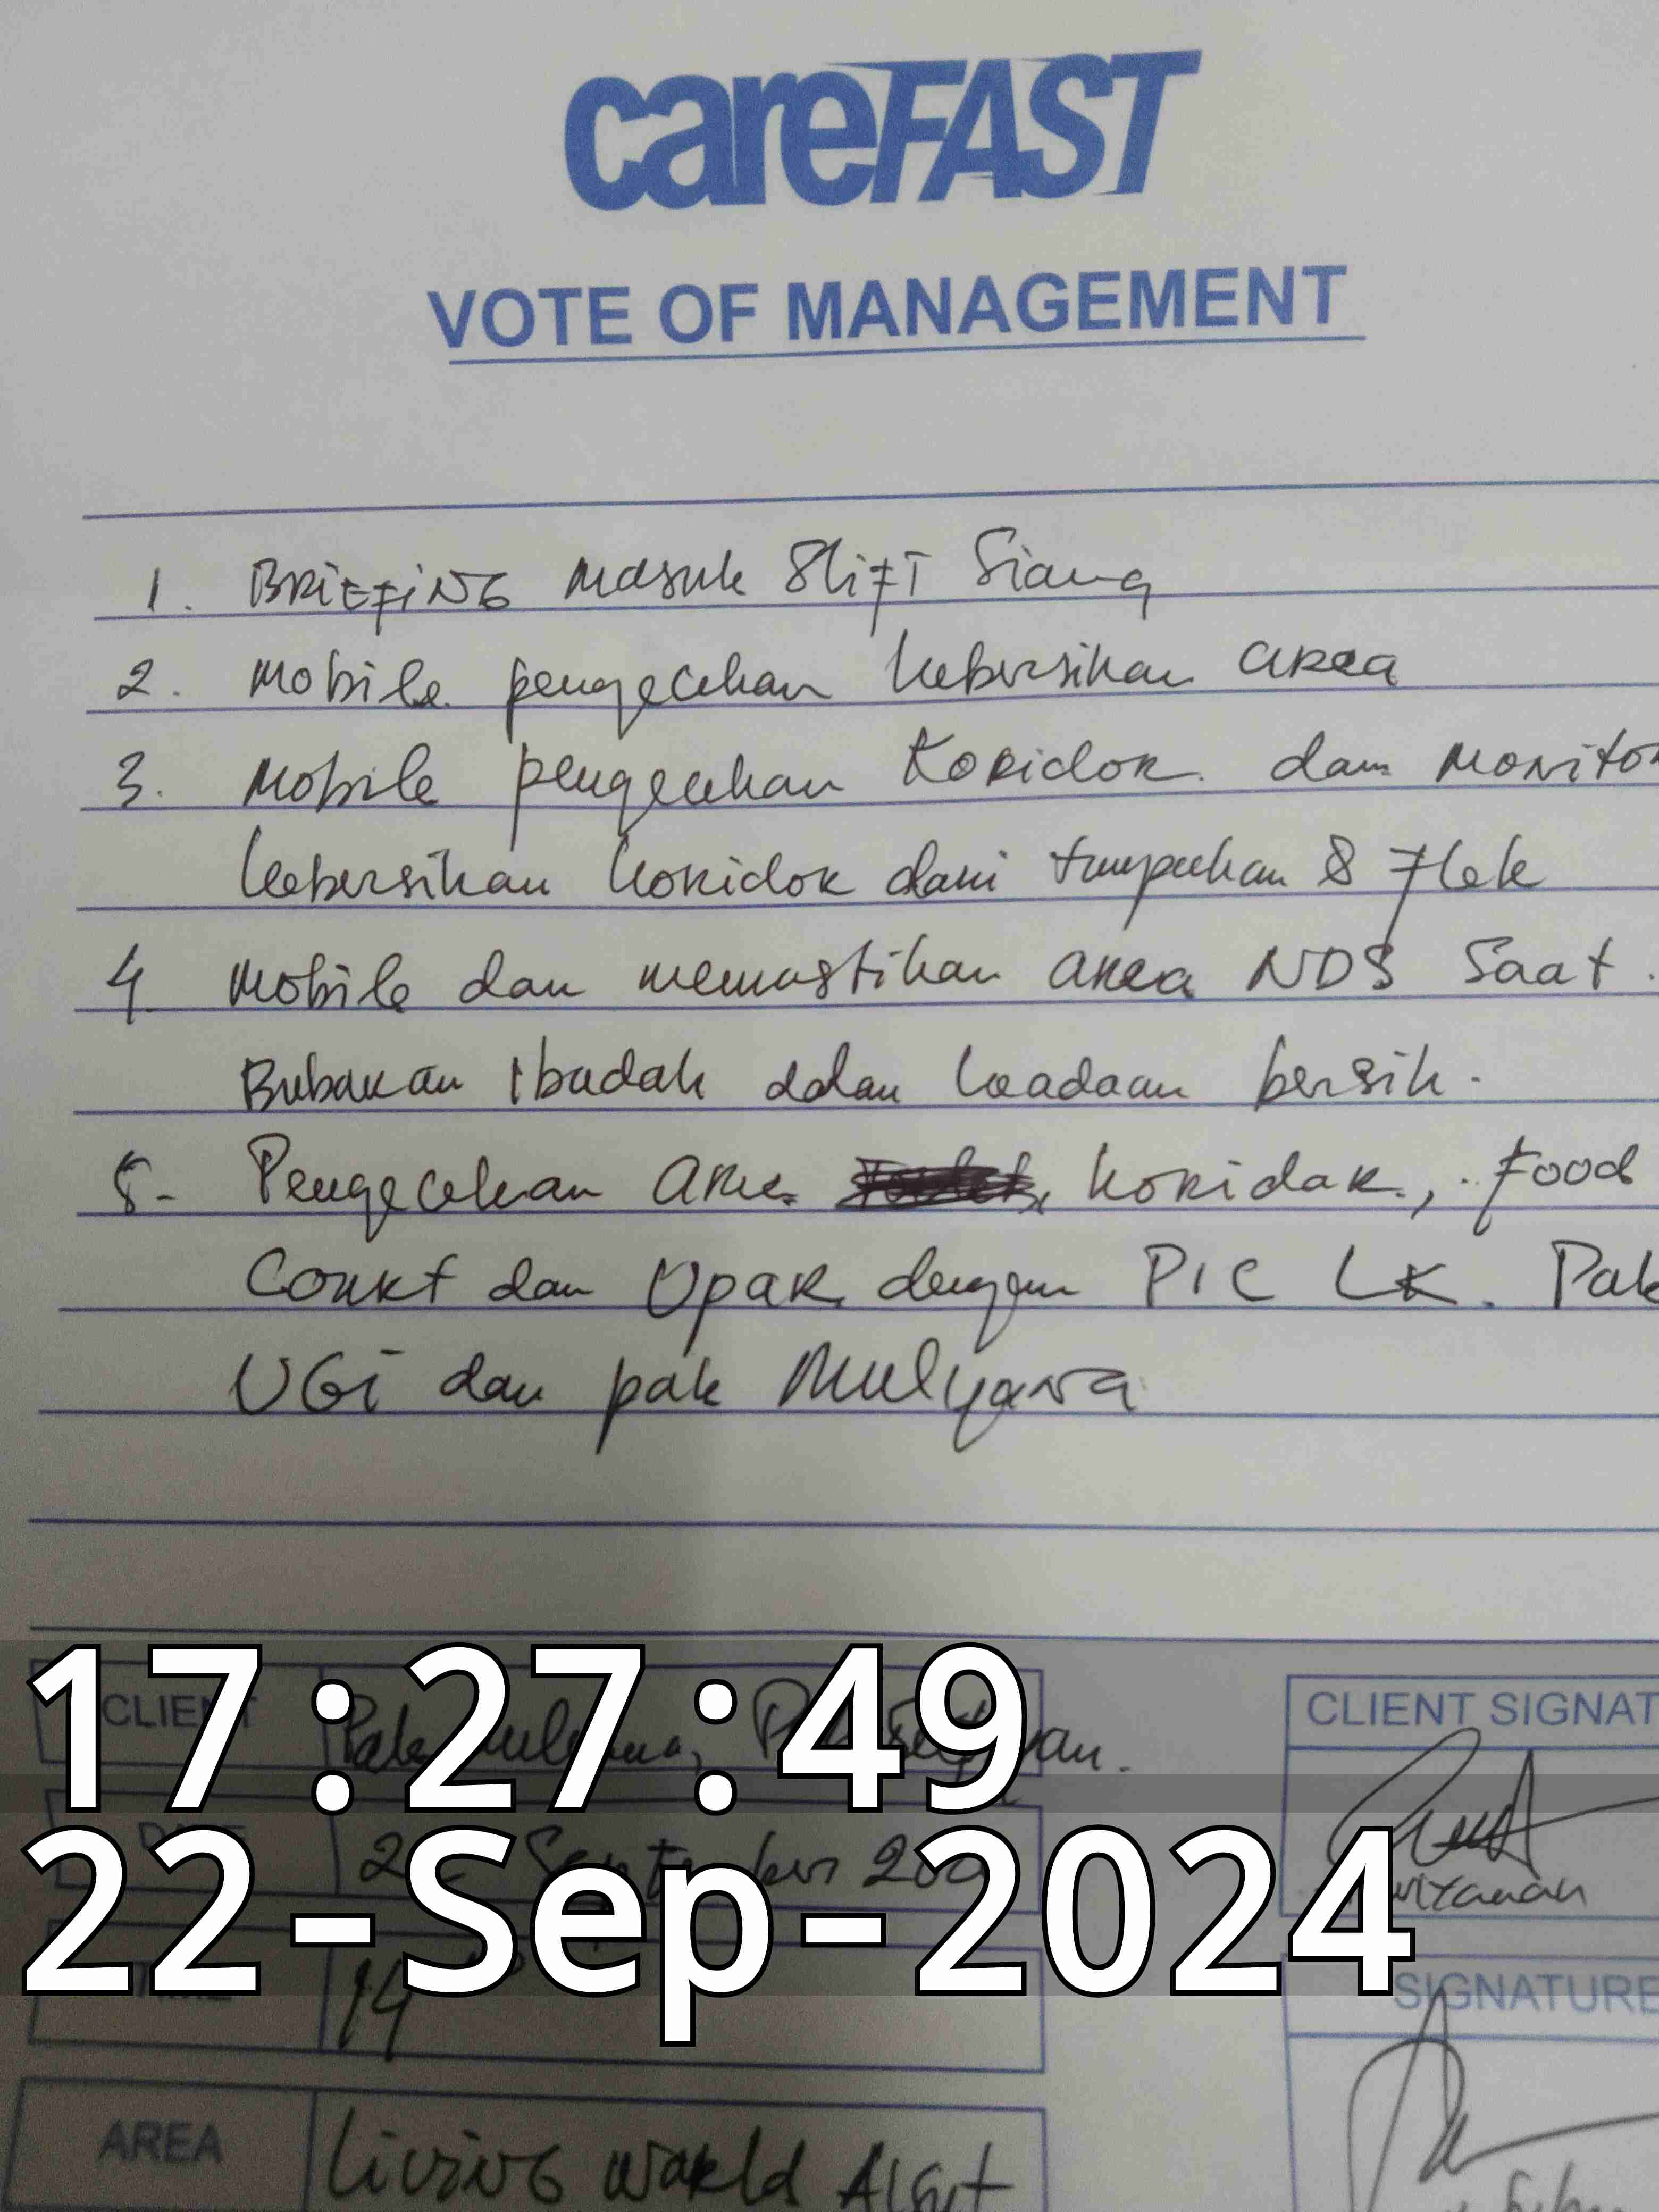 careFAST
VOTE OF MANAGEMENT
1. BRIEFING masuk SHIFT Siang
2. Mobile pengecekan kebersihan area
3. Mobile pengecekan Koridor dan Monitor
kebersihan koridor dari tumpahan & Flek
4. Mobile dan memastikan area NDS Saat
Bubaran Ibadah dalan keadaan bersih.
5. Pengecekan area koridor, Food
Court dan Opar dengan PIC LK. Pak
UGI dan pak Mulyana
17:27:49
CLIENT Pak
CLIENT SIGNAT
22-Sep-2024
DATE September
TIME 14
SIGNATURE
AREA LIVING WORLD Alsut